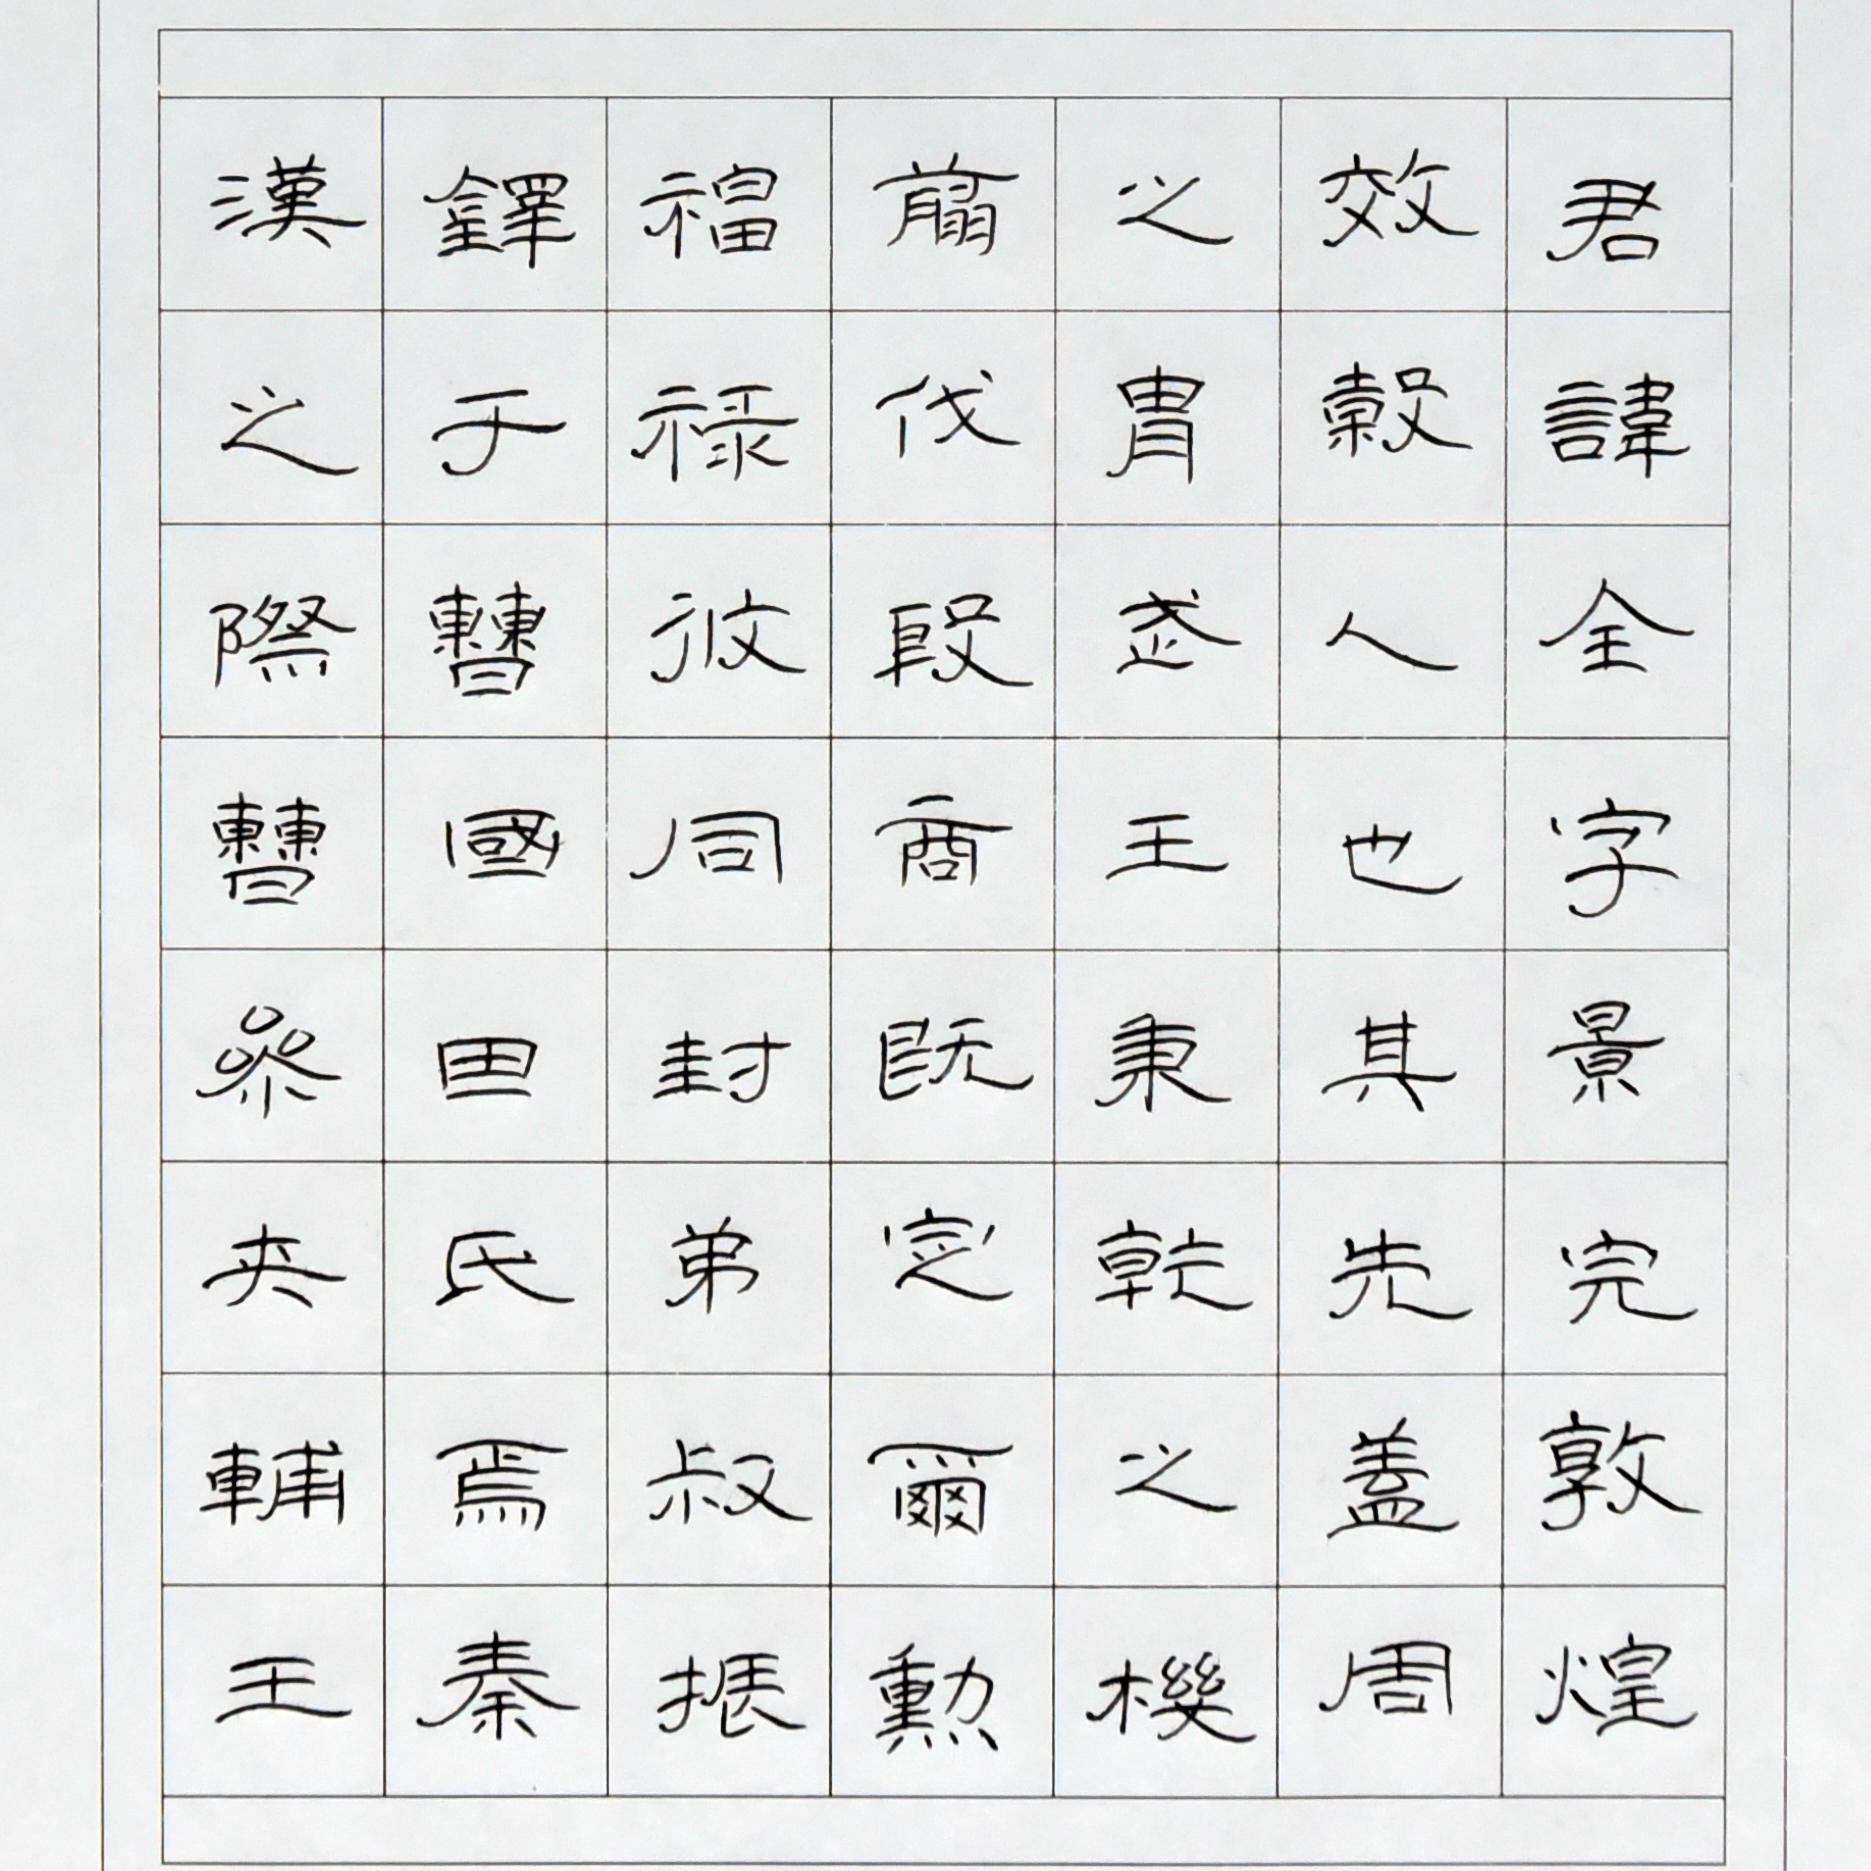 君諱全字景完敦煌
效穀人也其先蓋周
之胄武王秉乾之機
翦伐殷商既定爾勳
福祿攸同封弟叔振
鐸于曹國因氏焉秦
漢之際曹參夾輔王